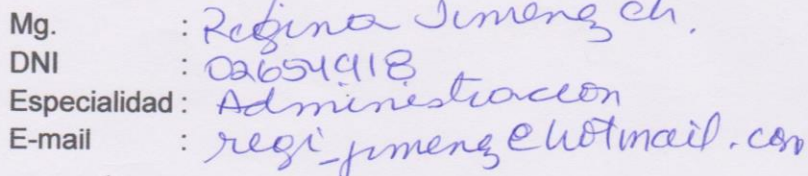 Mg. : Regina Jimenez Ch.
DNI : 02654918
Especialidad : Administracion
E-mail : regi_jimenez@hotmail.com